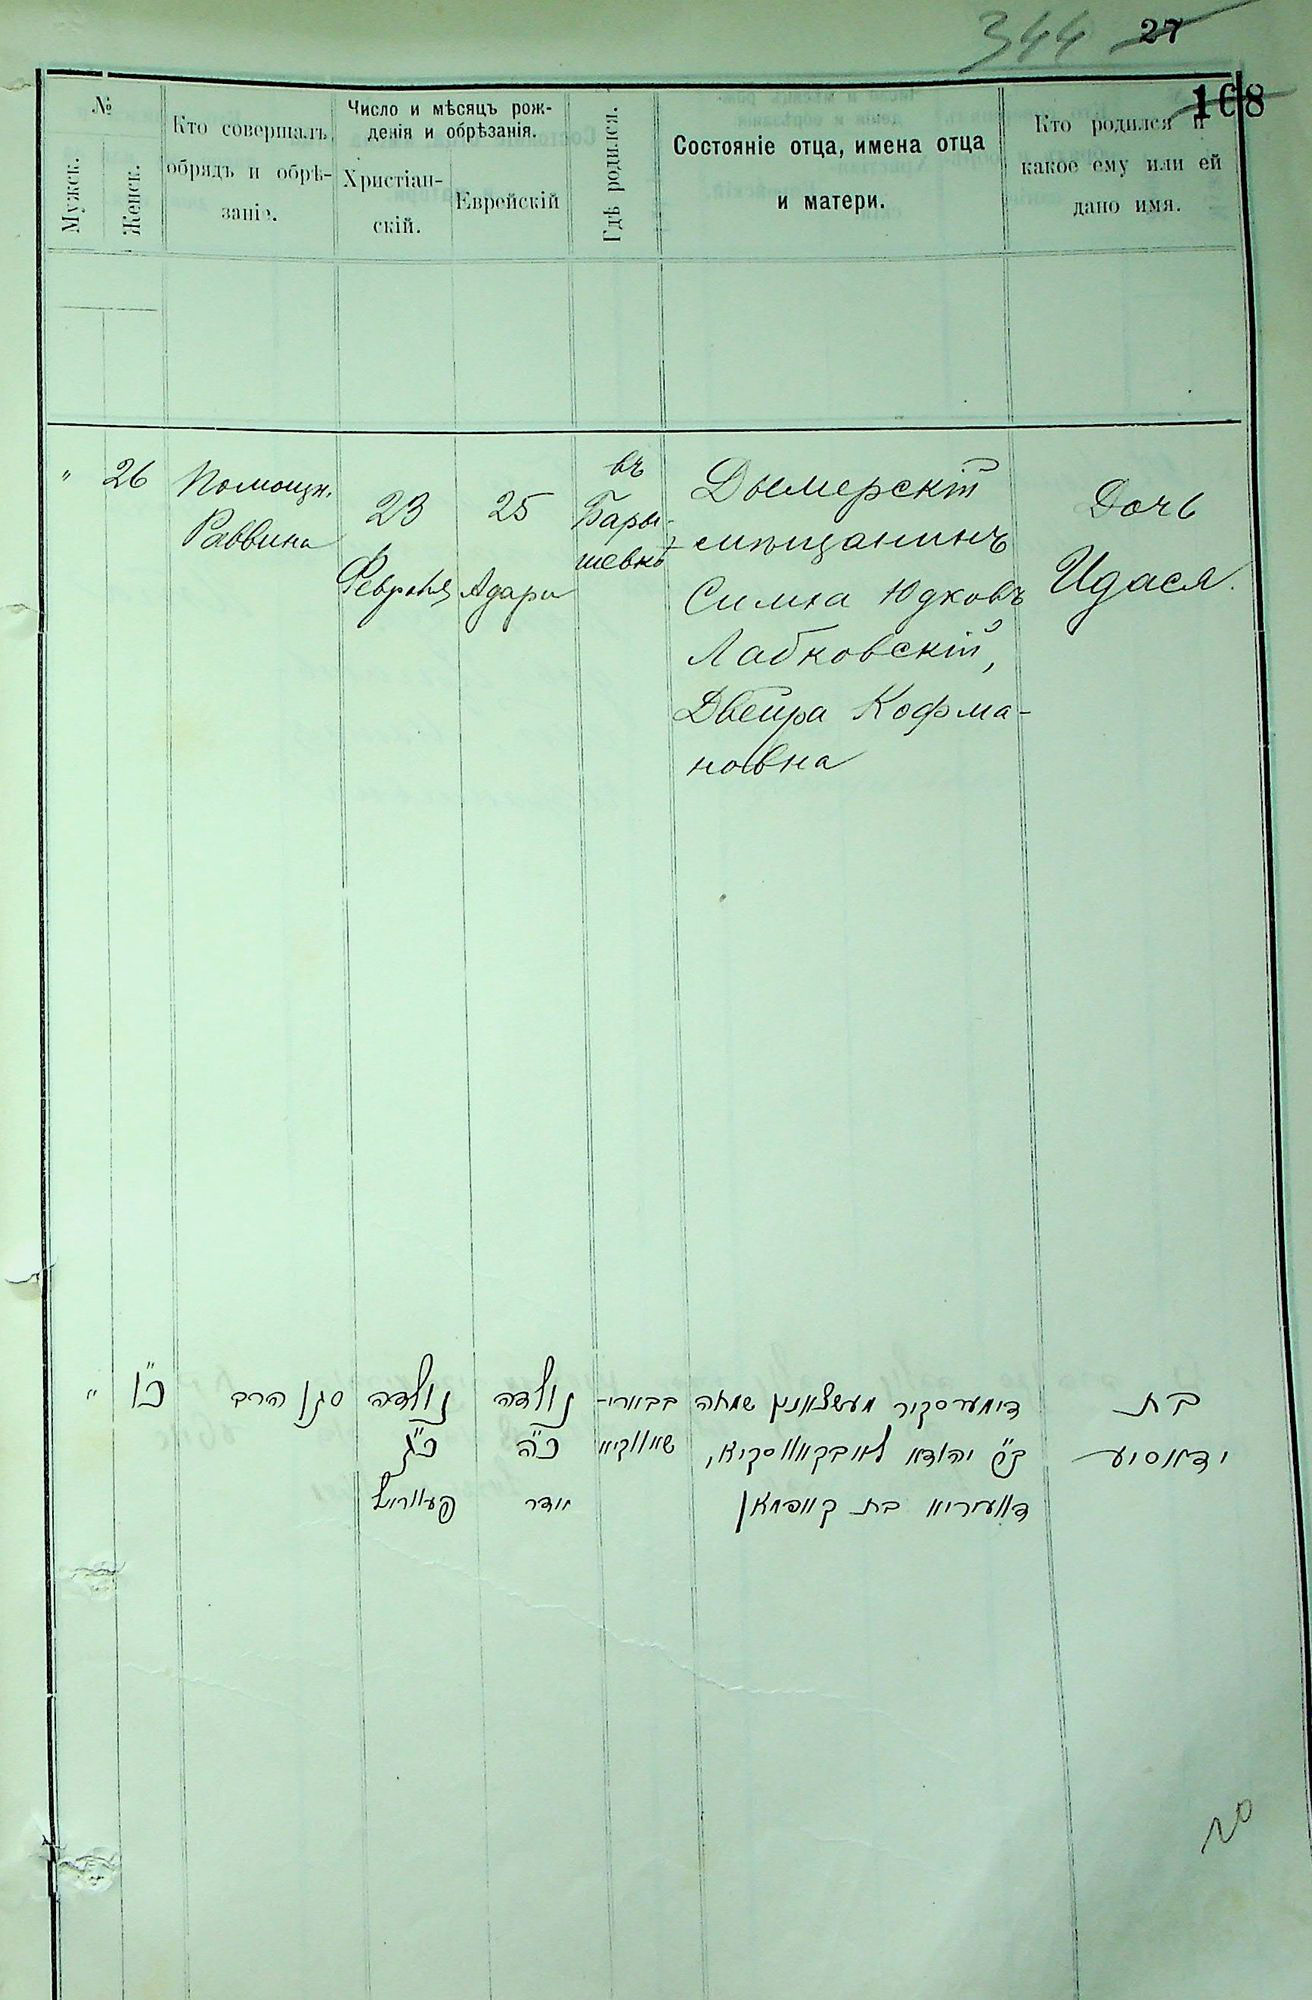 344 27
168
№
Мужск.
Женск.
Кто совершалъ
обрядъ и обрѣ-
заніе.
Число и мѣсяцъ рож-
денія и обрѣзанія.
Христіан-
скій.
Еврейскій
Гдѣ родился.
Состояніе отца, имена отца
и матери.
Кто родился и
какое ему или ей
дано имя.
" 26
Помощн.
Раввина
23
Февраля
25
Адара
въ
Бары-
шевкѣ
Дымерскій
мѣщанинъ
Симха Юдковъ
Лабковскій,
Двейра Кофма-
новна
Дочь
Идася.
" כ"ו
סגן הרב
נולדה
כ"ג
פעווריל
נולדה
כ"ה
אדר
בבארי-
שאווקיא
דימערסקיר מעשצאנין שמחה
ב"ר יהודא לאבקאווסקיא,
דוועירא בת קאפמאן
בת
ידאסיע
20